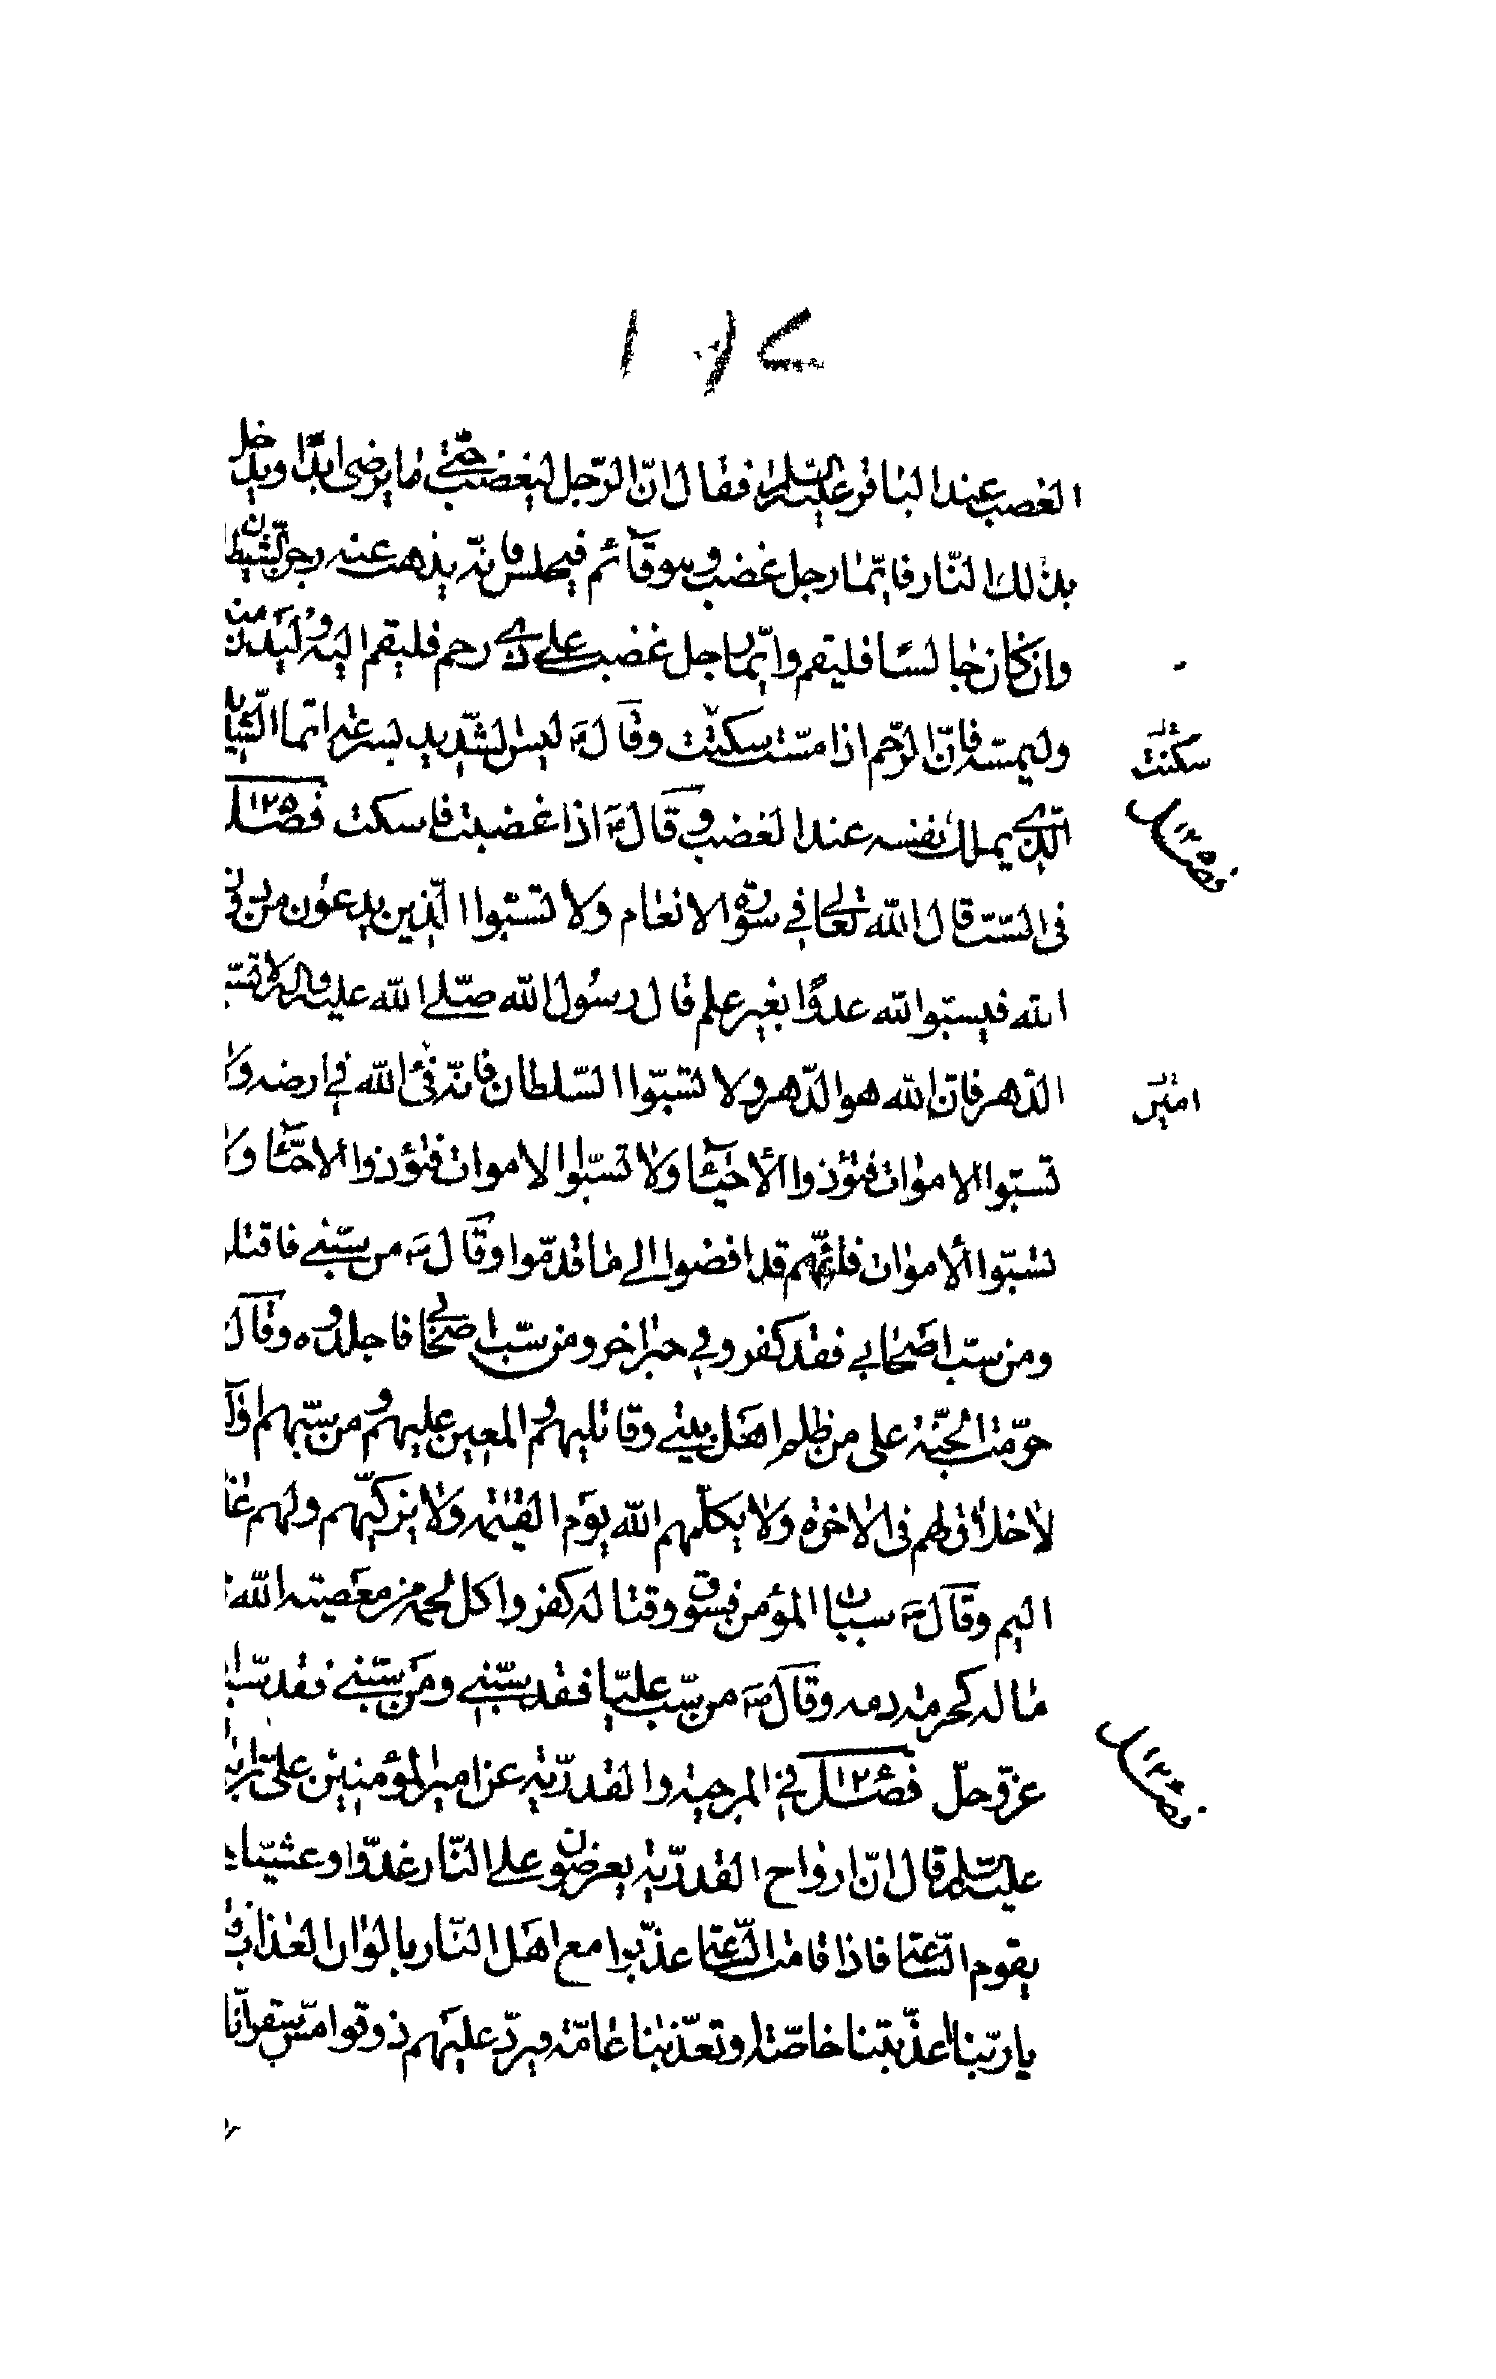 الغضب عند الباقر عليه السلم فقال انّ الرّجل ليغضب حتى ما يرضى ابدا ويدخل
بذلك النّار فايّما رجل غضب وهو قآئم فيجلس فانّه يذهب عنه رجز الشيطان
وان كان جالسًا فليقم وايّما رجل غضب على ذي رحم فليقم اليه وليدن منه
وليمسّه فانّ الرّحم اذا مسّت سكنت وقال ص ليس الشّديد بسرعة انما الشّديد
الّذي يملك نفسه عند الغضب وقال ص اذا غضبت فاسكت فصل ١٢٥
في السّبّ قال الله تعالى في سورة الانعام ولا تسبّوا الّذين يدعون من دون
الله فيسبّوا الله عدوًا بغير علم قال رسول الله صلّى الله عليه واله لا تسبّوا
الدّهر فانّ الله هو الدّهر ولا تسبّوا السّلطان فانّه فئ الله في ارضه ولا
تسبّوا الاموات فتؤذوا الأحيآء ولا تسبّوا الاموات فتؤذوا الاحيآء ولا
تسبّوا الاموات فانّهم قد افضوا الى ما قدّموا وقال ص من سبّني فاقتلوه
ومن سبّ اصحابي فقد كفر وفي خبر اخر ومن سبّ اصحابي فاجلدوه وقال
حرّمت الجنّة على من ظلم اهل بيتي وقاتلهم والمعين عليهم ومن سبّهم اولئك
لا خلاق لهم في الاخرة ولا يكلّمهم الله يوم القيمة ولا يزكّيهم ولهم عذاب
اليم وقال ص سباب المؤمن فسوق وقتاله كفر واكل لحمه من معصية الله
ماله كحرمة دمه وقال ص من سبّ عليّا فقد سبّني ومن سبّني فقد سبّ الله
عزّ وجلّ فصل ١٢٦ في المرجية والقدريّة عن امير المؤمنين علي
عليه السّلم قال انّ ارواح القدريّة يعرضون على النّار غدوّا وعشيّا
يقوم السّاعة فاذا قامت السّاعة عذّبوا مع اهل النّار بالوان العذاب
يا ربّنا عذّبتنا خاصّة وتعذّبنا عامّة فيردّ عليهم ذوقوا مسّ سقر انّا
سكنت
فصل ١٢٥
امين
فصل ١٢٦